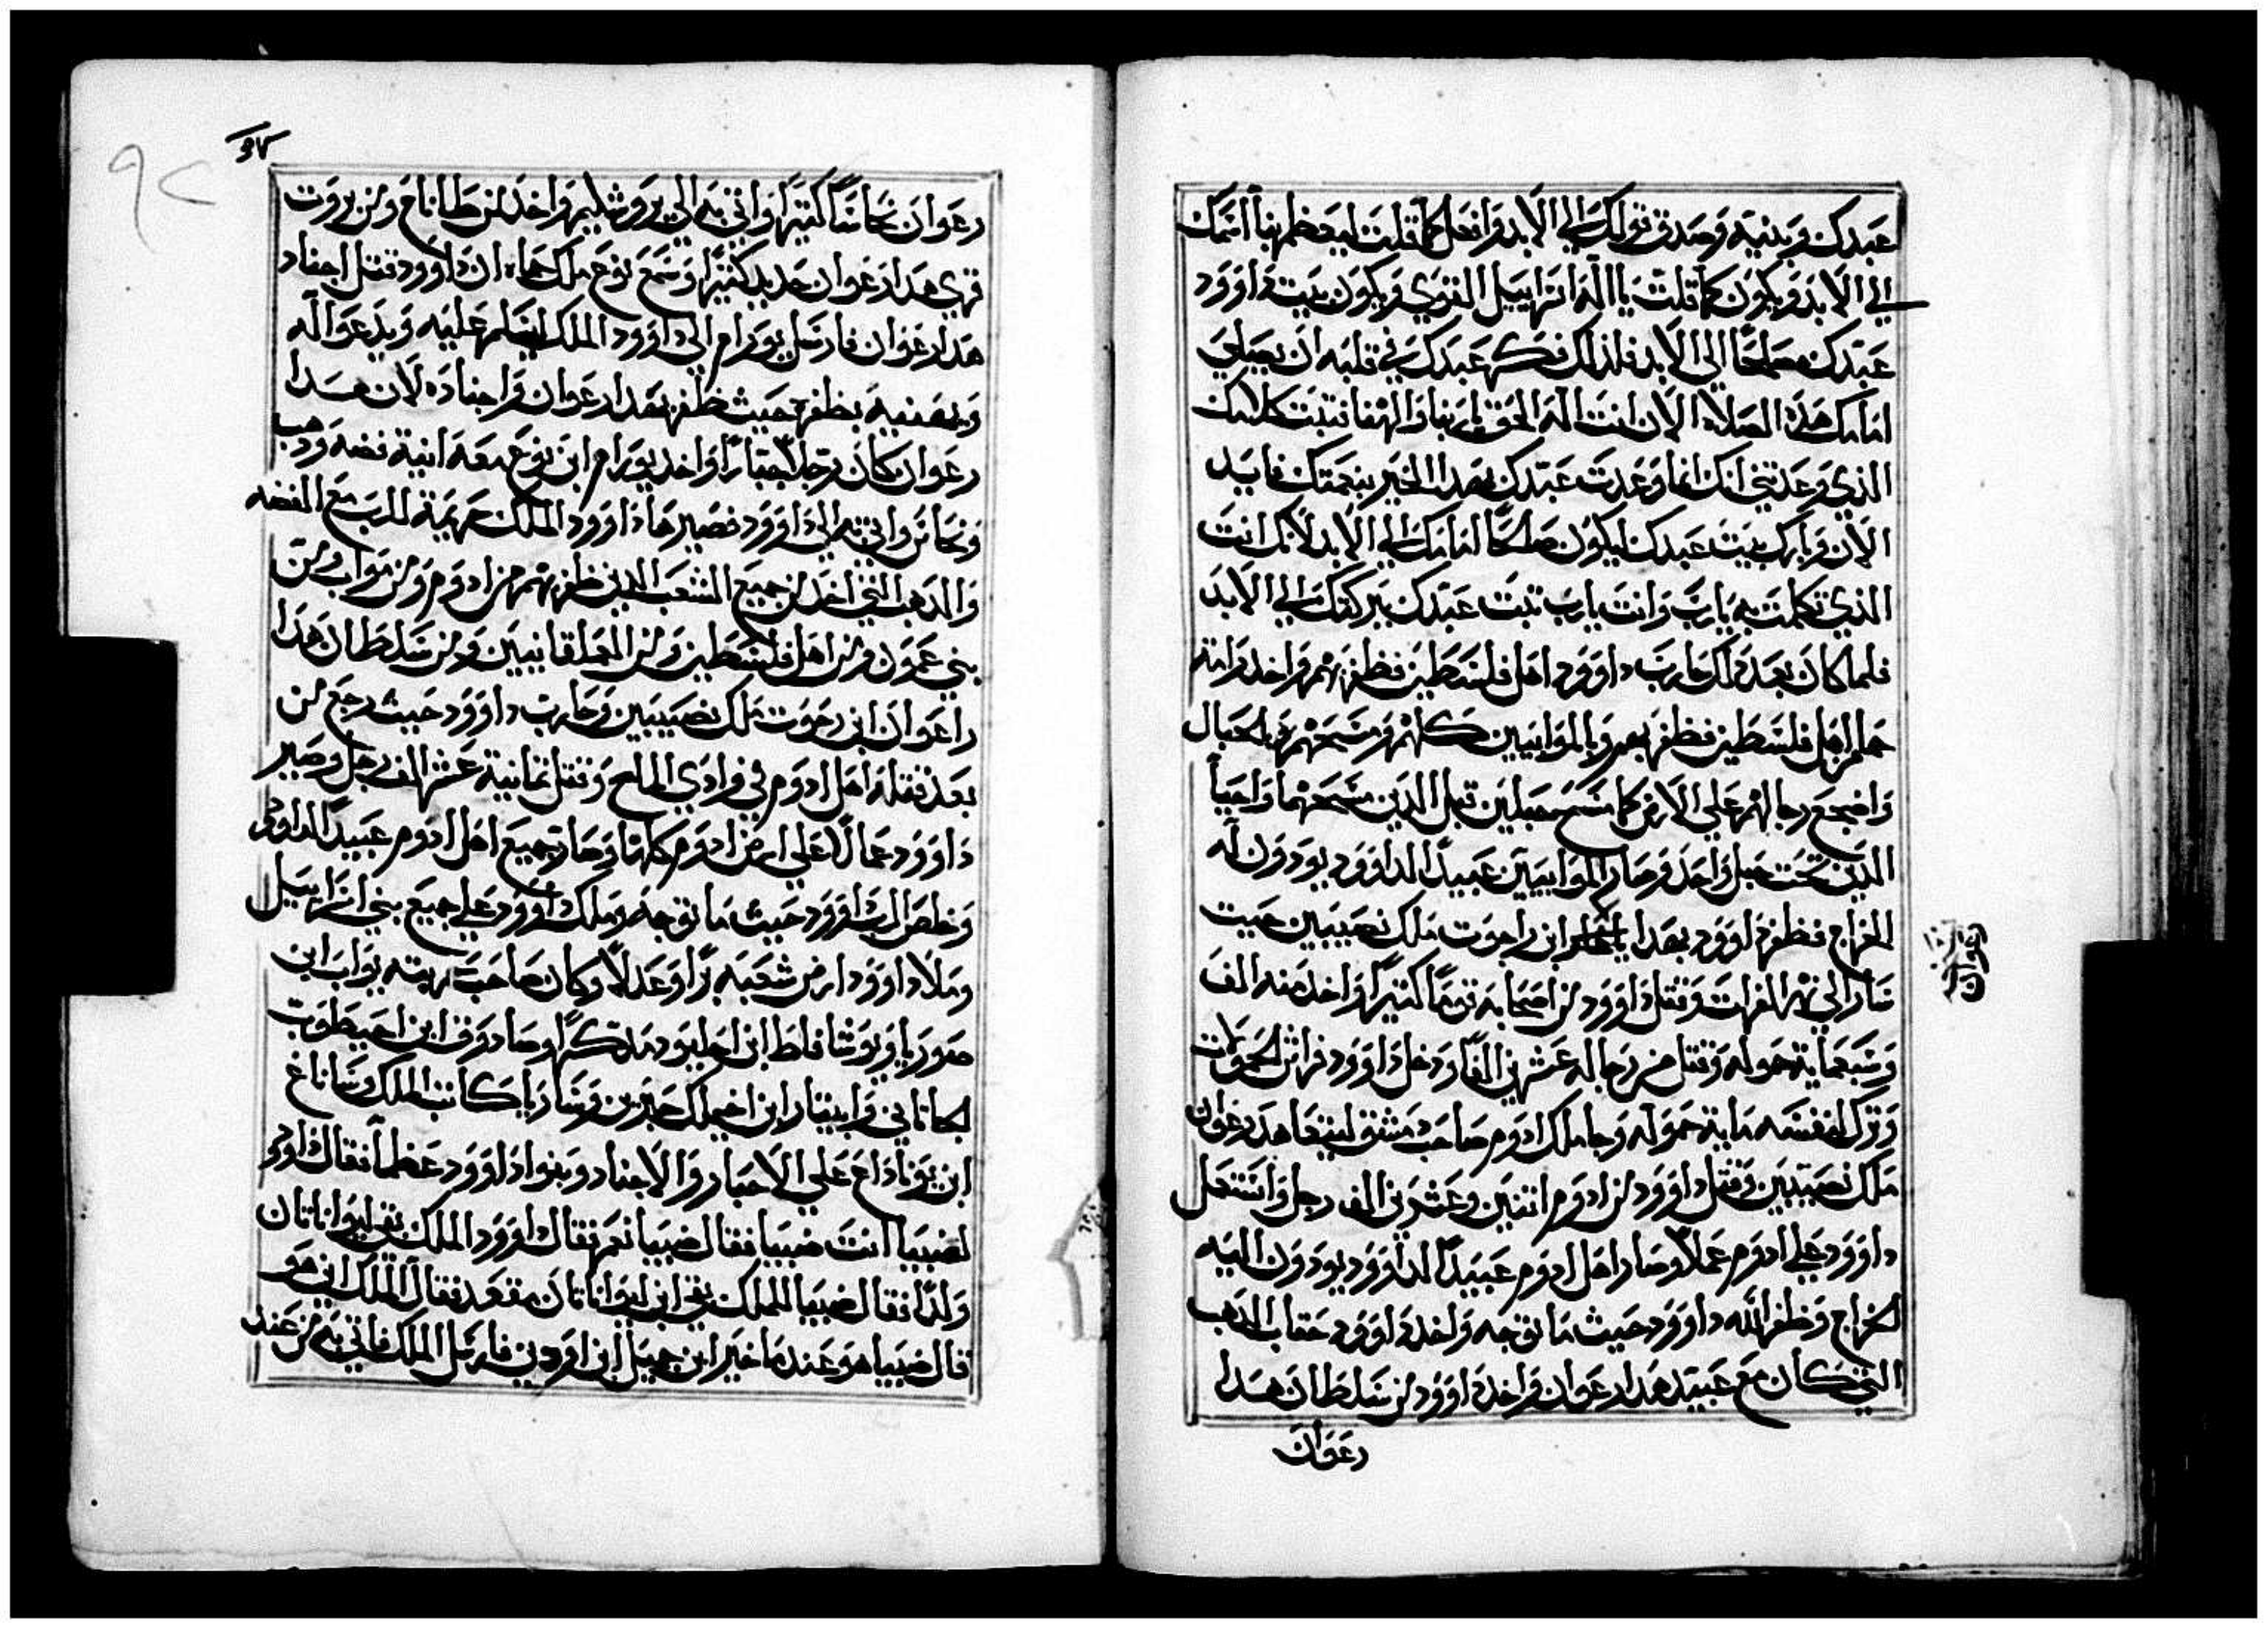 عبدك وبدنيه وصدق قولك الي الابد وافعل كما قلت ليعظم بها اسمك
الي الابد ويكون كما قلت يا اله اسراييل القوي ويكون بيت داوود
عبدك مصلحًا الي الابد فلذلك فكر عبدك في قلبه ان يصلي
امامك هذه الصلاه الان انت اله الحق يا ربنا والهنا فتبت كلامك
الذي وعدتني انك انما وعدت عبدك بهدا الخير بنعمتك فايد
الان وبارك بيت عبدك ليكون صلحًا امامك الي الابد لانك انت
الذي تكلمت به يا رب وانت يارب تبت عبدك ببركتك الي الابد
فلما كان بعد دلك حارب داوود اهل فلسطين فظفر بهم واخد رامة
اهل فلسطين فظفر بهم وبالموابيين كلهم ومسحهم بالحبال
واضجع رجالهم علي الارض كما مسح حبلين قبل الدين مسحهما واحيا
الدين تحت حبل واحد وصار الموابيين عبيدًا لداوود يودون له
الخراج فظفر داوود بهدا ابن راحوت ملك نصيبين حيت
سار الي نهر الفرات وقتل داوود من اصحابه قومًا كتيرًا واخد منه الف
وسبعماية حموله وقتل من رجاله عشرين الفًا ودخل داوود فراش الحمولات
وترك لنفسه ماية حموله وجا ملك ادوم صاحب دمشق ليتعاهد رعوان
ملك نصيبين وقتل داوود من ادوم اتنين وعشرين الف رجل واستعمل
داوود علي ادوم عملاً وصار اهل ادوم عبيدًا لداوود يودون اليه
الخراج وظفر الله داوود حيث ما توجه واخد داوود حقاب الدهب
التي كان مع عبيد هدارعوان واخد داوود من سلطان هدا
رعوان
رعوان
٩٢
رعوان نحاسًا كتيرًا واتي به الي يروشليم واخد من طاناح ومن بروت
قري هدارعوان حديد كتيرًا وسمع نوع ملك حماه ان داوود قتل اجناد
هدارعوان فارسل يورام الي داوود الملك ليسلم عليه ويدعوا له
ويهنيه بظفره حيث ظفر بهدارعوان واجناده لان هدا
رعوان كان رجلاً جبارًا واخد يورام ابن نوع معه انية فضه ودهب
ونحاس واتي به الي داوود فصيرها داوود الملك حريمة للرب مع الفضه
والدهب التي اخد من جميع الشعب الدين ظفر بهم من ادوم ومن مواب ومن
بني عمون ومن اهل فلسطين ومن العملاقانيين ومن سلطان هدا
راعوان ابن رحوت ملك نصيبين وحارب داوود حيث رجع من
بعد قتله اهل ادوم في وادي الملح وقتل تمانية عشر الف رجل وصير
داوود عمالاً علي ارض ادوم كلها وصار جميع اهل ادوم عبيدًا لداوود
وخلص الرب داوود حيث ما توجه وملك داوود علي جميع بني اسراييل
وملا داوود ارض شعبه برًا وعدلاً وكان صاحب ريته يواب ابن
صوريا ويوشافاط ابن احيلود مدكرًا وصادوق ابن احيطوب
الحاتاني وابيتار ابن اخيملك حبرين وساريا كاتب الملك وساناع
ابن يوناداع علي الاحبار والاجناد وبنوا داوود عظما فقال داوود
لضيبيا انت ضيبيا فقال ضيبيا نعم فقال داوود الملك بقي ليواناتان
ولدًا فقال ضيبيا للملك بقي ابن ليواناتان مقعد فقال الملك اين هو
قال ضيبيا هو عند ماخير ابن جميل ابن امرودني فارسل الملك فاتي به من عند